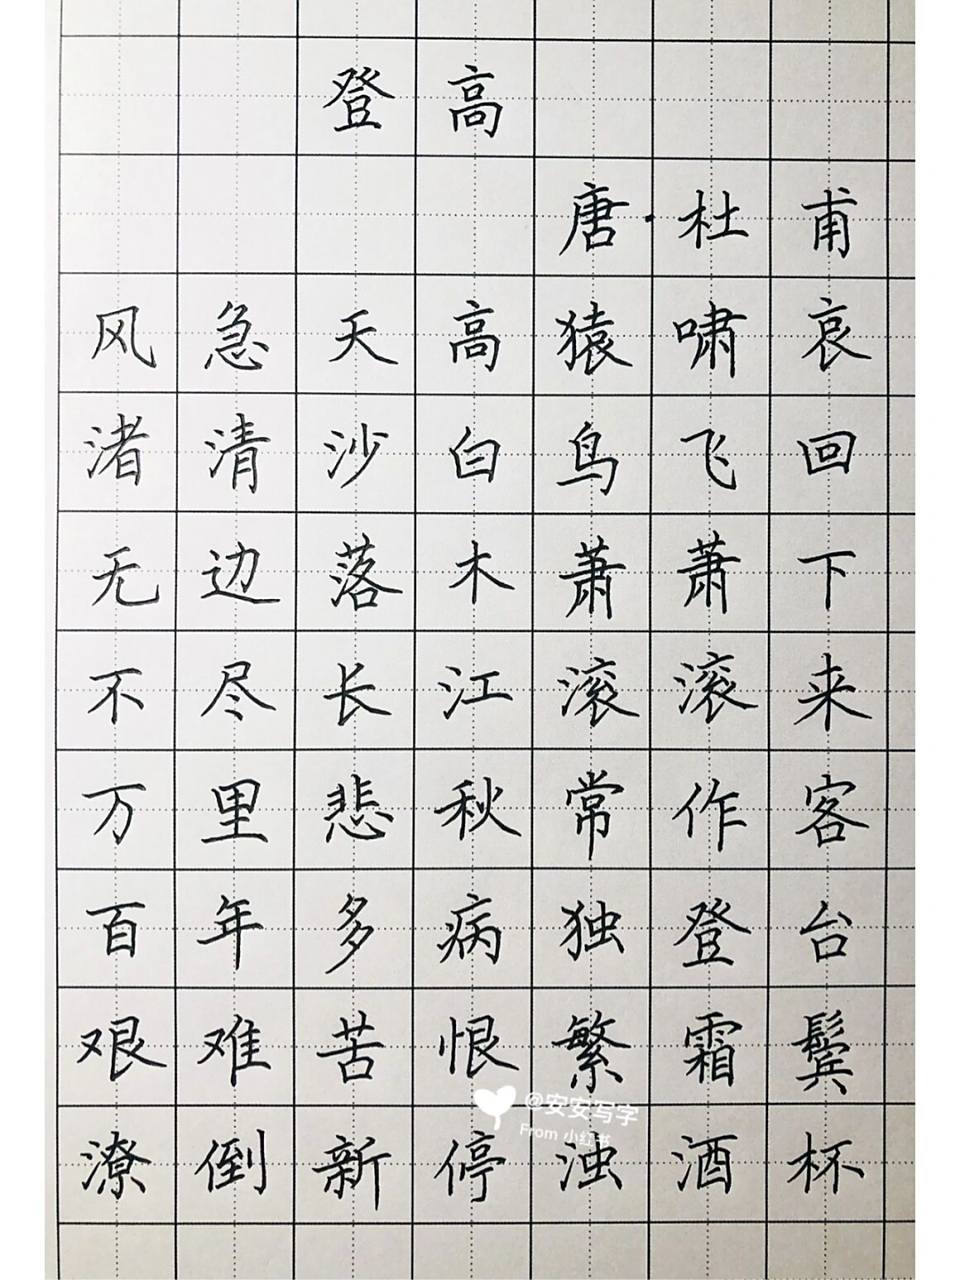 登高
唐·杜甫
风急天高猿啸哀
渚清沙白鸟飞回
无边落木萧萧下
不尽长江滚滚来
万里悲秋常作客
百年多病独登台
艰难苦恨繁霜鬓
潦倒新停浊酒杯
@安安写字
From 小红书